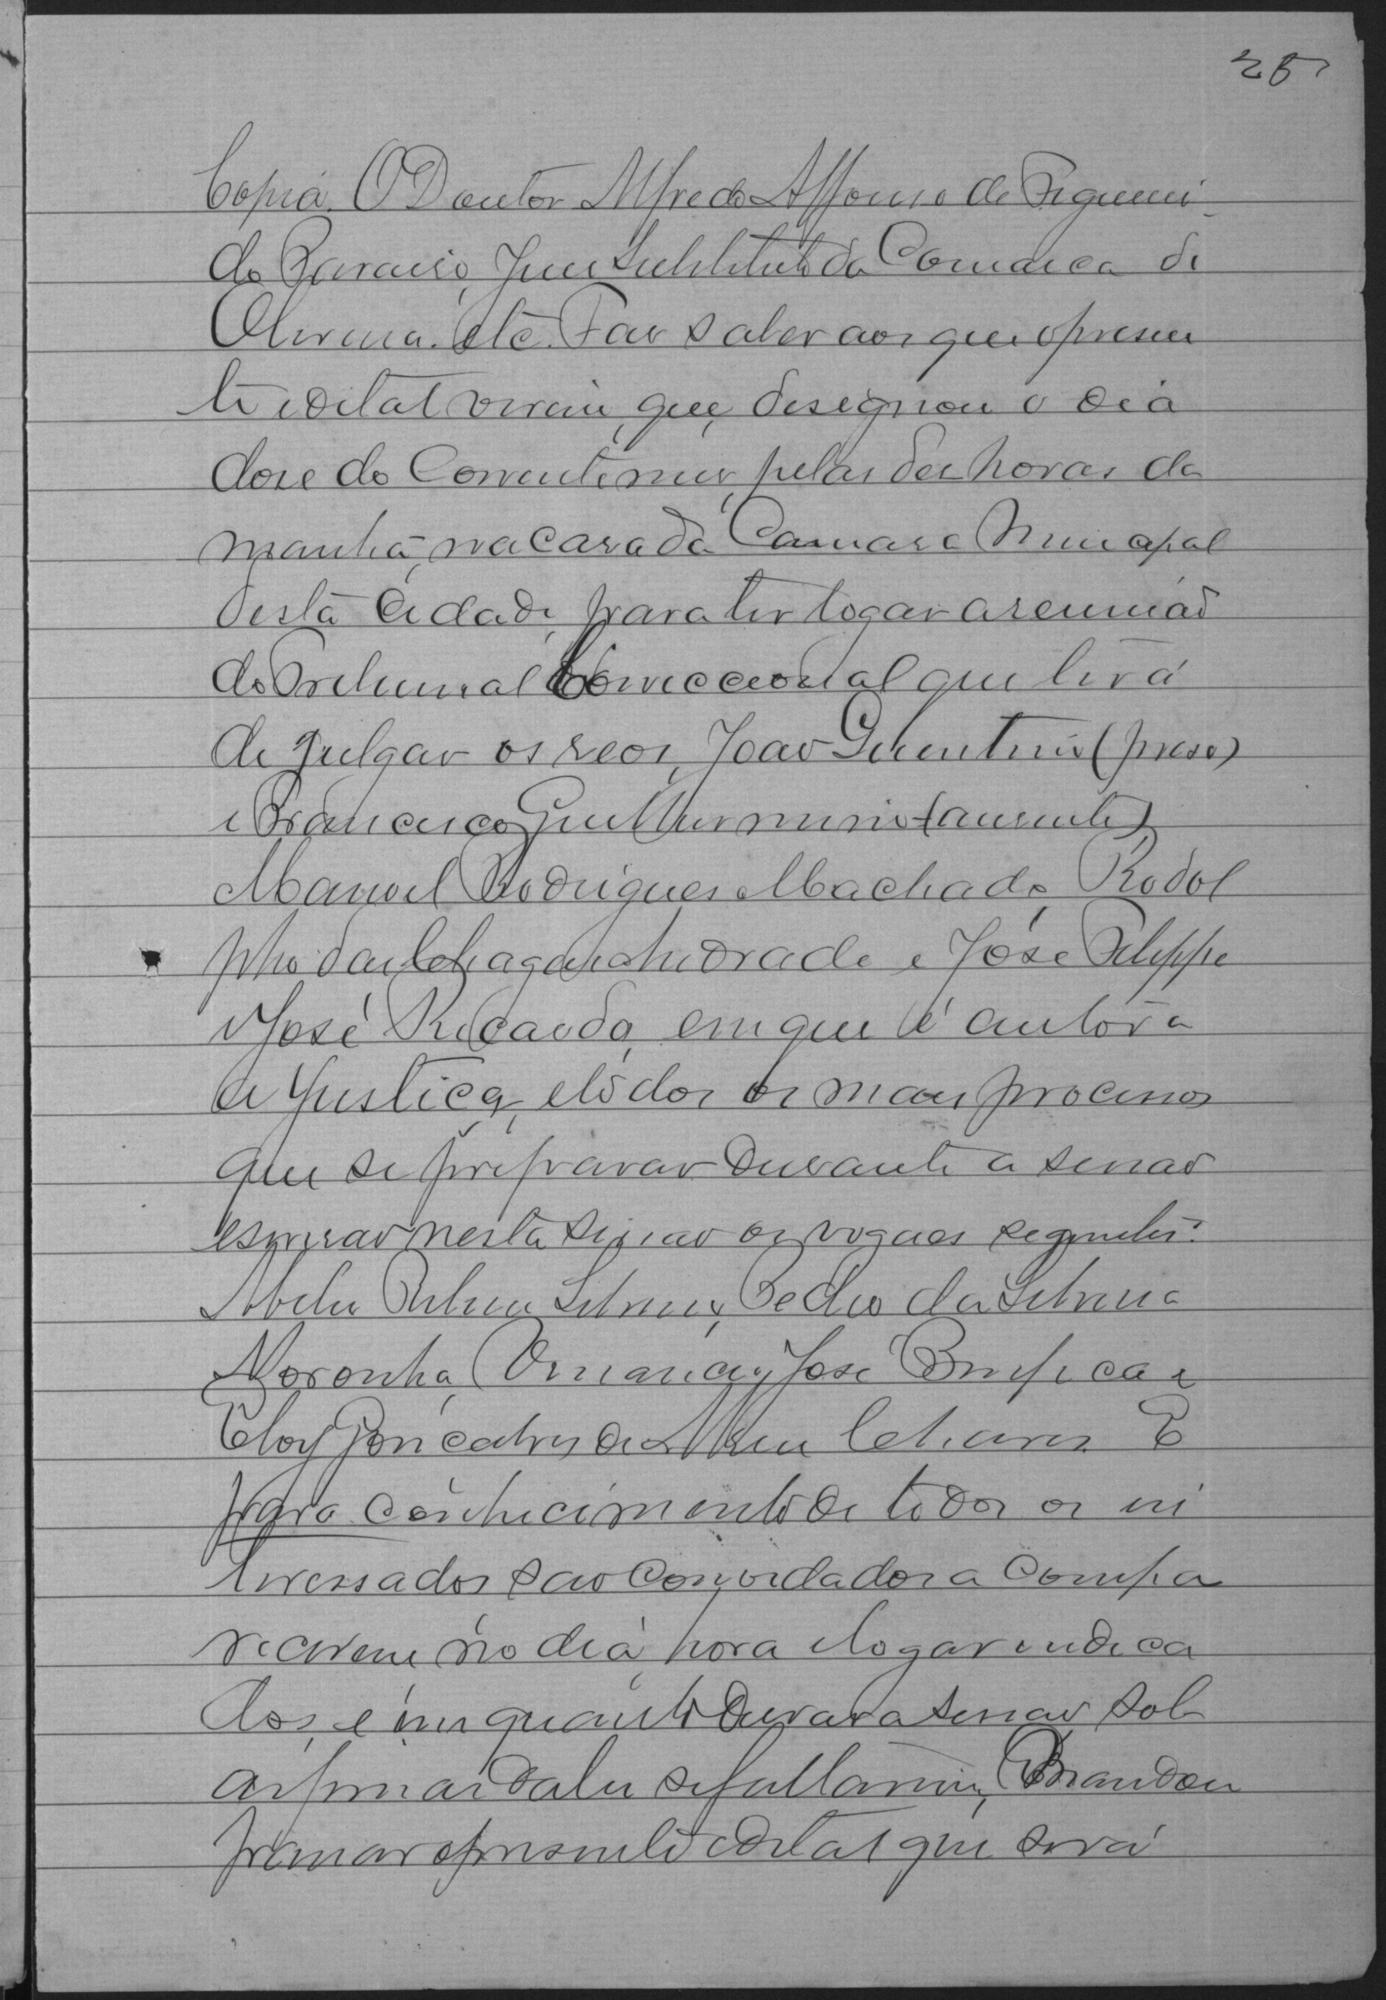 25
Copia. O Doutor Alfredo Affonso de Figuei-
do Paraiso, Juiz Substituto da Comarca de
Oliveira. etc. Faz saber aos que o presen
te edital virem, que, designou o dia
dose do Corrente mez, pelas dez horas da
manhã, na casa da Camara Municipal
desta Cidade, para ter logar a reunião
do Tribunal Correccional que terá
de julgar os reos, João Quintino (preso)
e Francisco Guilhermino (ausente)
Manoel Rodrigues Machado, Rodol
pho das Chagas Andrade e José Felippe
e José Ricardo, em que é autora
a Justiça, e todos os mais processos
que se preparar durante a sessão
nesta sessão os vogaes seguintes:
Abilio Silveira, Pedro da Silveira
Noronha, José Bemfica e
Eloy Gonçalves de Chaves E
para conhecimento de todos os in
teressados são convidados a compa
recerem no dia, hora e logar indica
dos, e emquanto durar a sessão, sob
as penas da lei se faltarem, Mandou
passar o presente edital que será